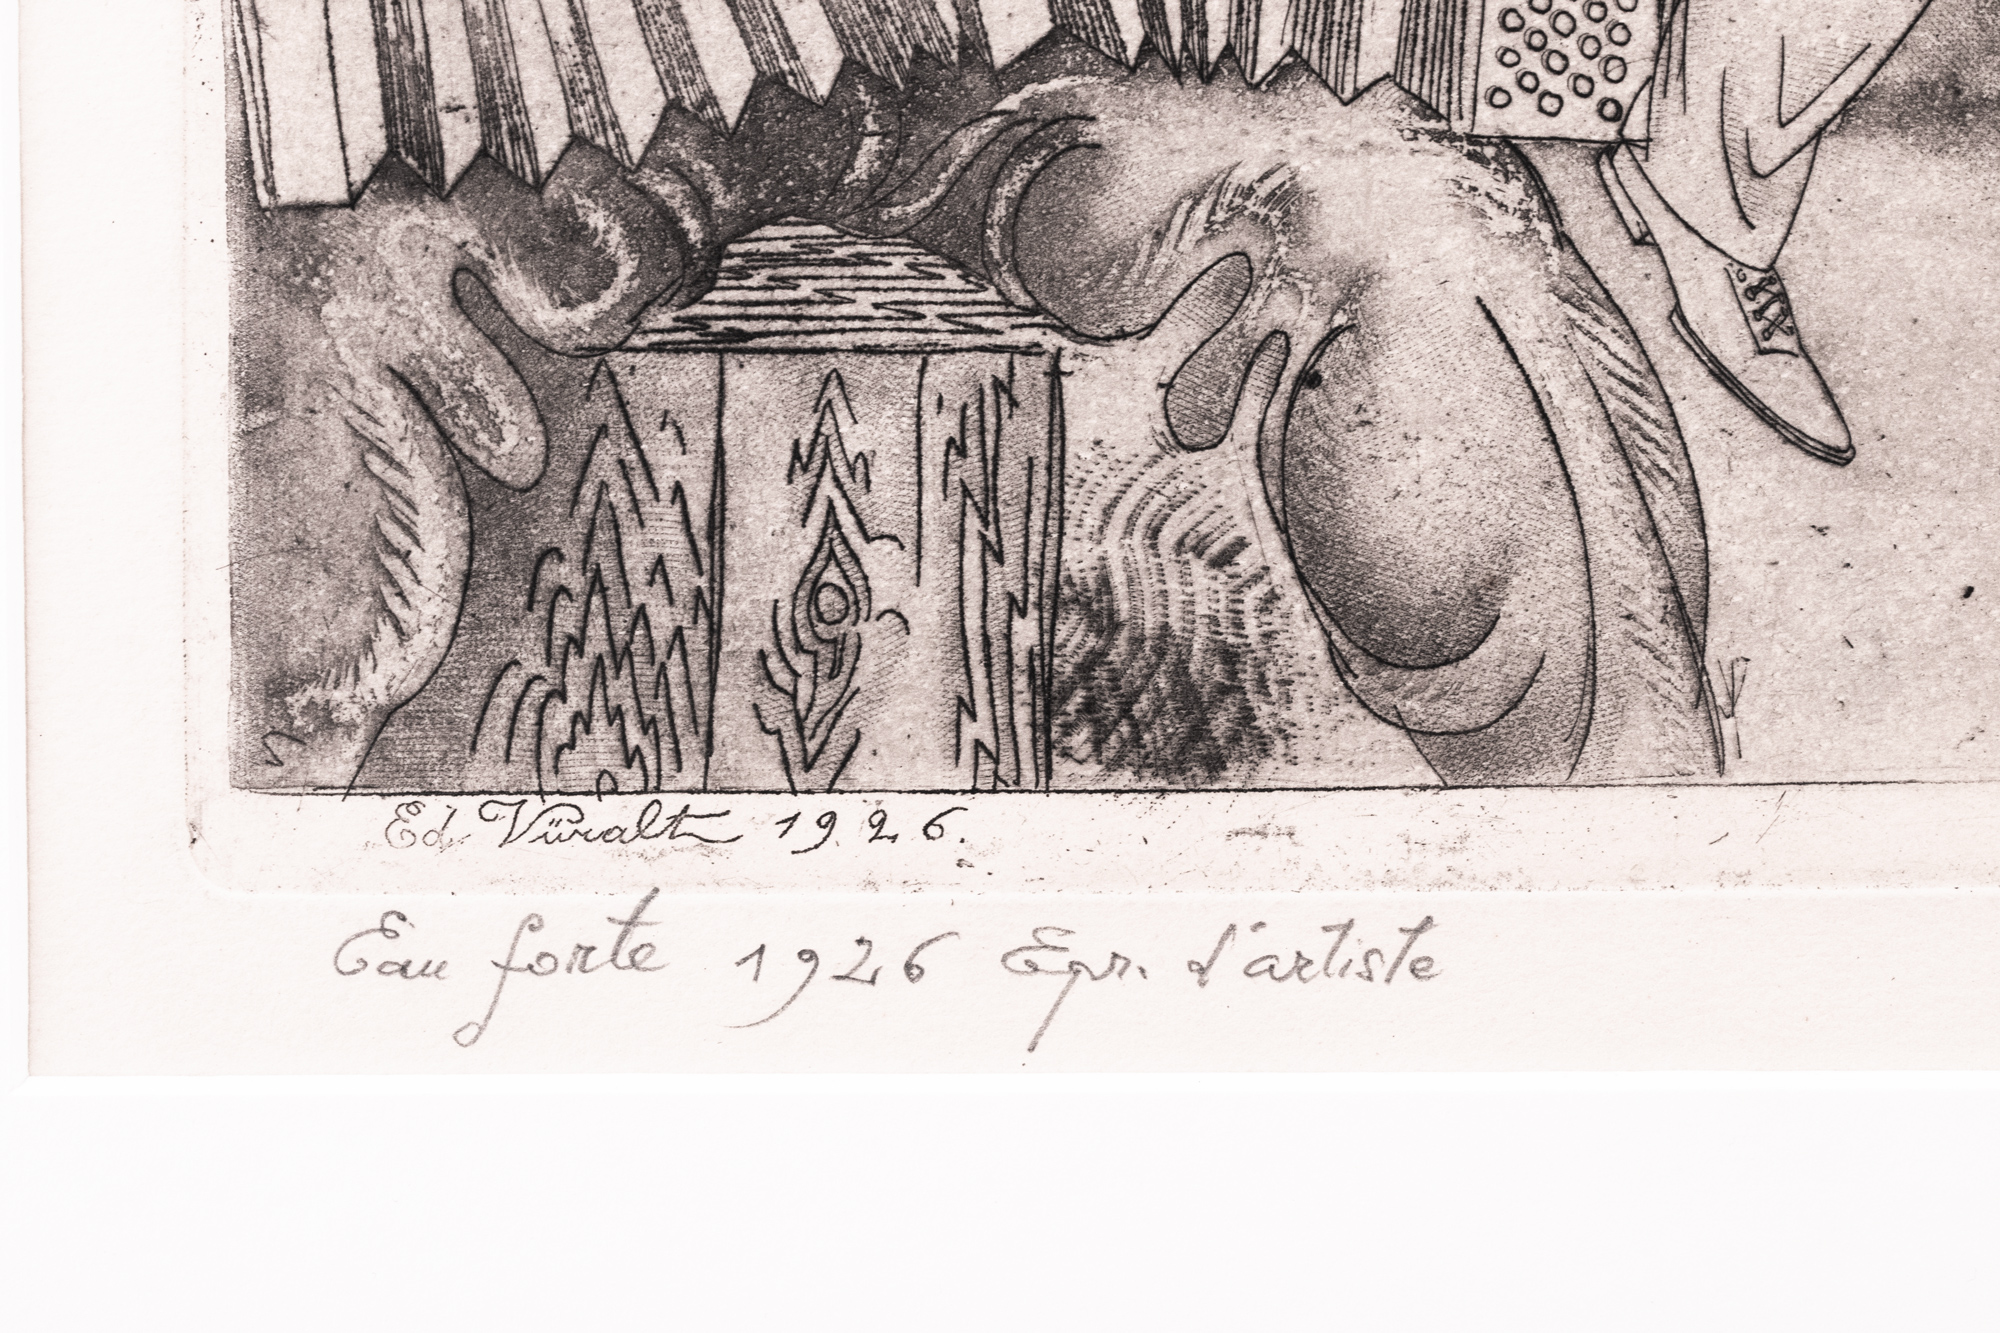 Ed. Vüralt 1926.
Eau forte 1926 Epr. d'artiste